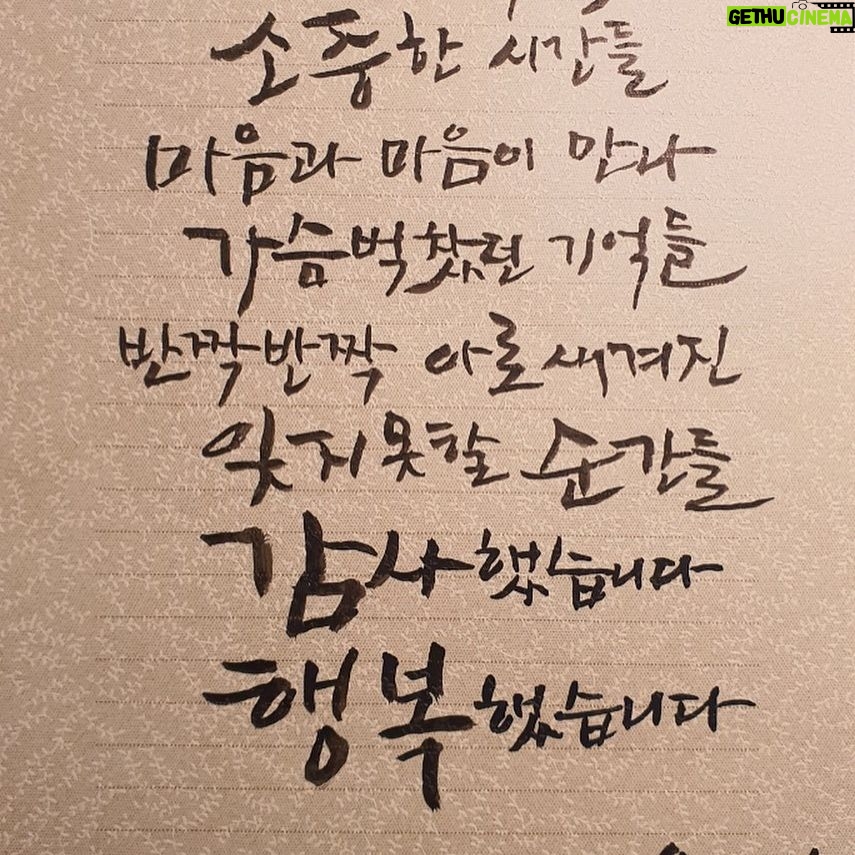 GETHUCINEMA
소중한 시간들
마음과 마음이 만나
가슴벅찼던 기억들
반짝반짝 아로새겨진
잊지못할 순간들
감사했습니다
행복했습니다